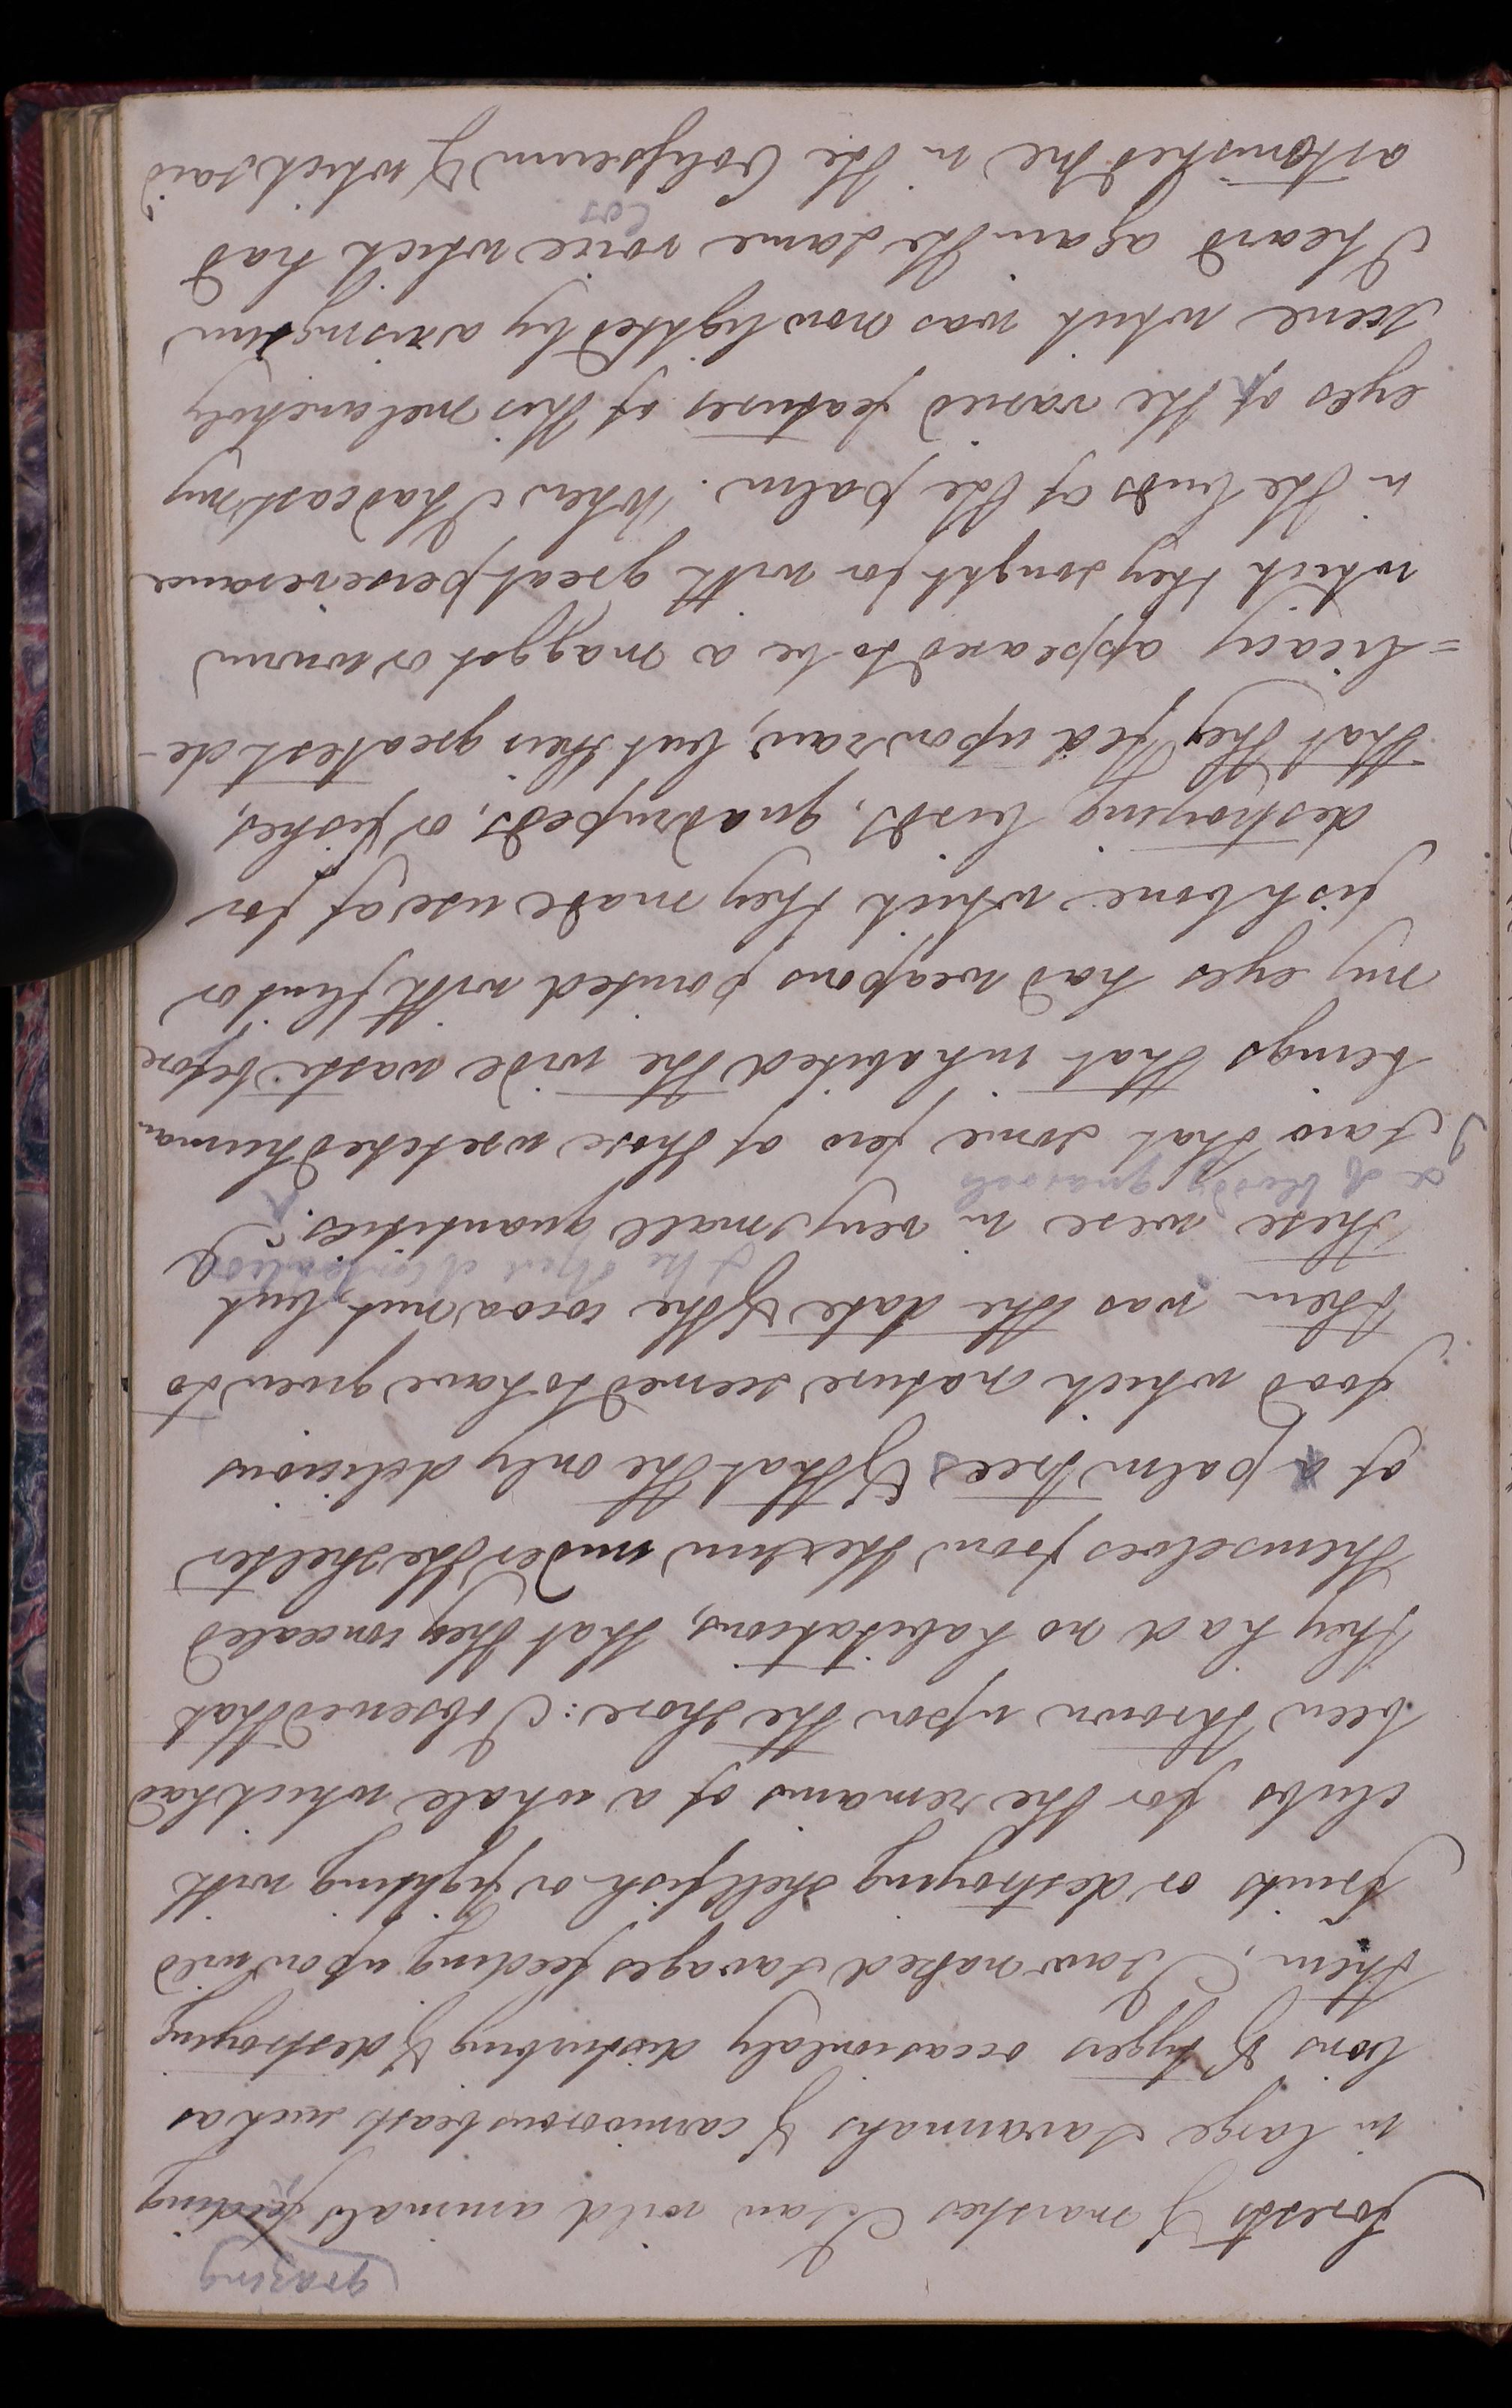 grazing
forests & marshes I saw wild animals feeding
in large savannahs & carnivorous beasts such as
lions & tygers occasionlaly disturbing & destroying
them. I saw naked savages feeding upon wild
fruits or destroying shellfish or fighting with
clubs for the remains of a whale which had
been thrown upon the shore: I observed that
they had no habitations, that they concealed
themselves from the sun under the shelter
of a palm trees & that the only delicious
food which nature seemed to have given to
them was the date & the cocoa nut but
these were in very small quantities.
& of bloody quarrels
I saw that some few of those wretched human
beings that inhabited the wide waste before
my eyes had weapons pointed with flint or
fish bone which they made use of for
destroying birds, quadrupeds, or fishes,
that they fed upon raw, but their greatest de-
=licacy appeared to be a maggot or worm
which they sought for with great perseverance
in the buds of the palm. When I had cast my
eyes of the varied features of this melancholy
scene which was now lighted by a rising sun
I heard again the same voice which had
Cos
astonished me in the Colyseum & which said